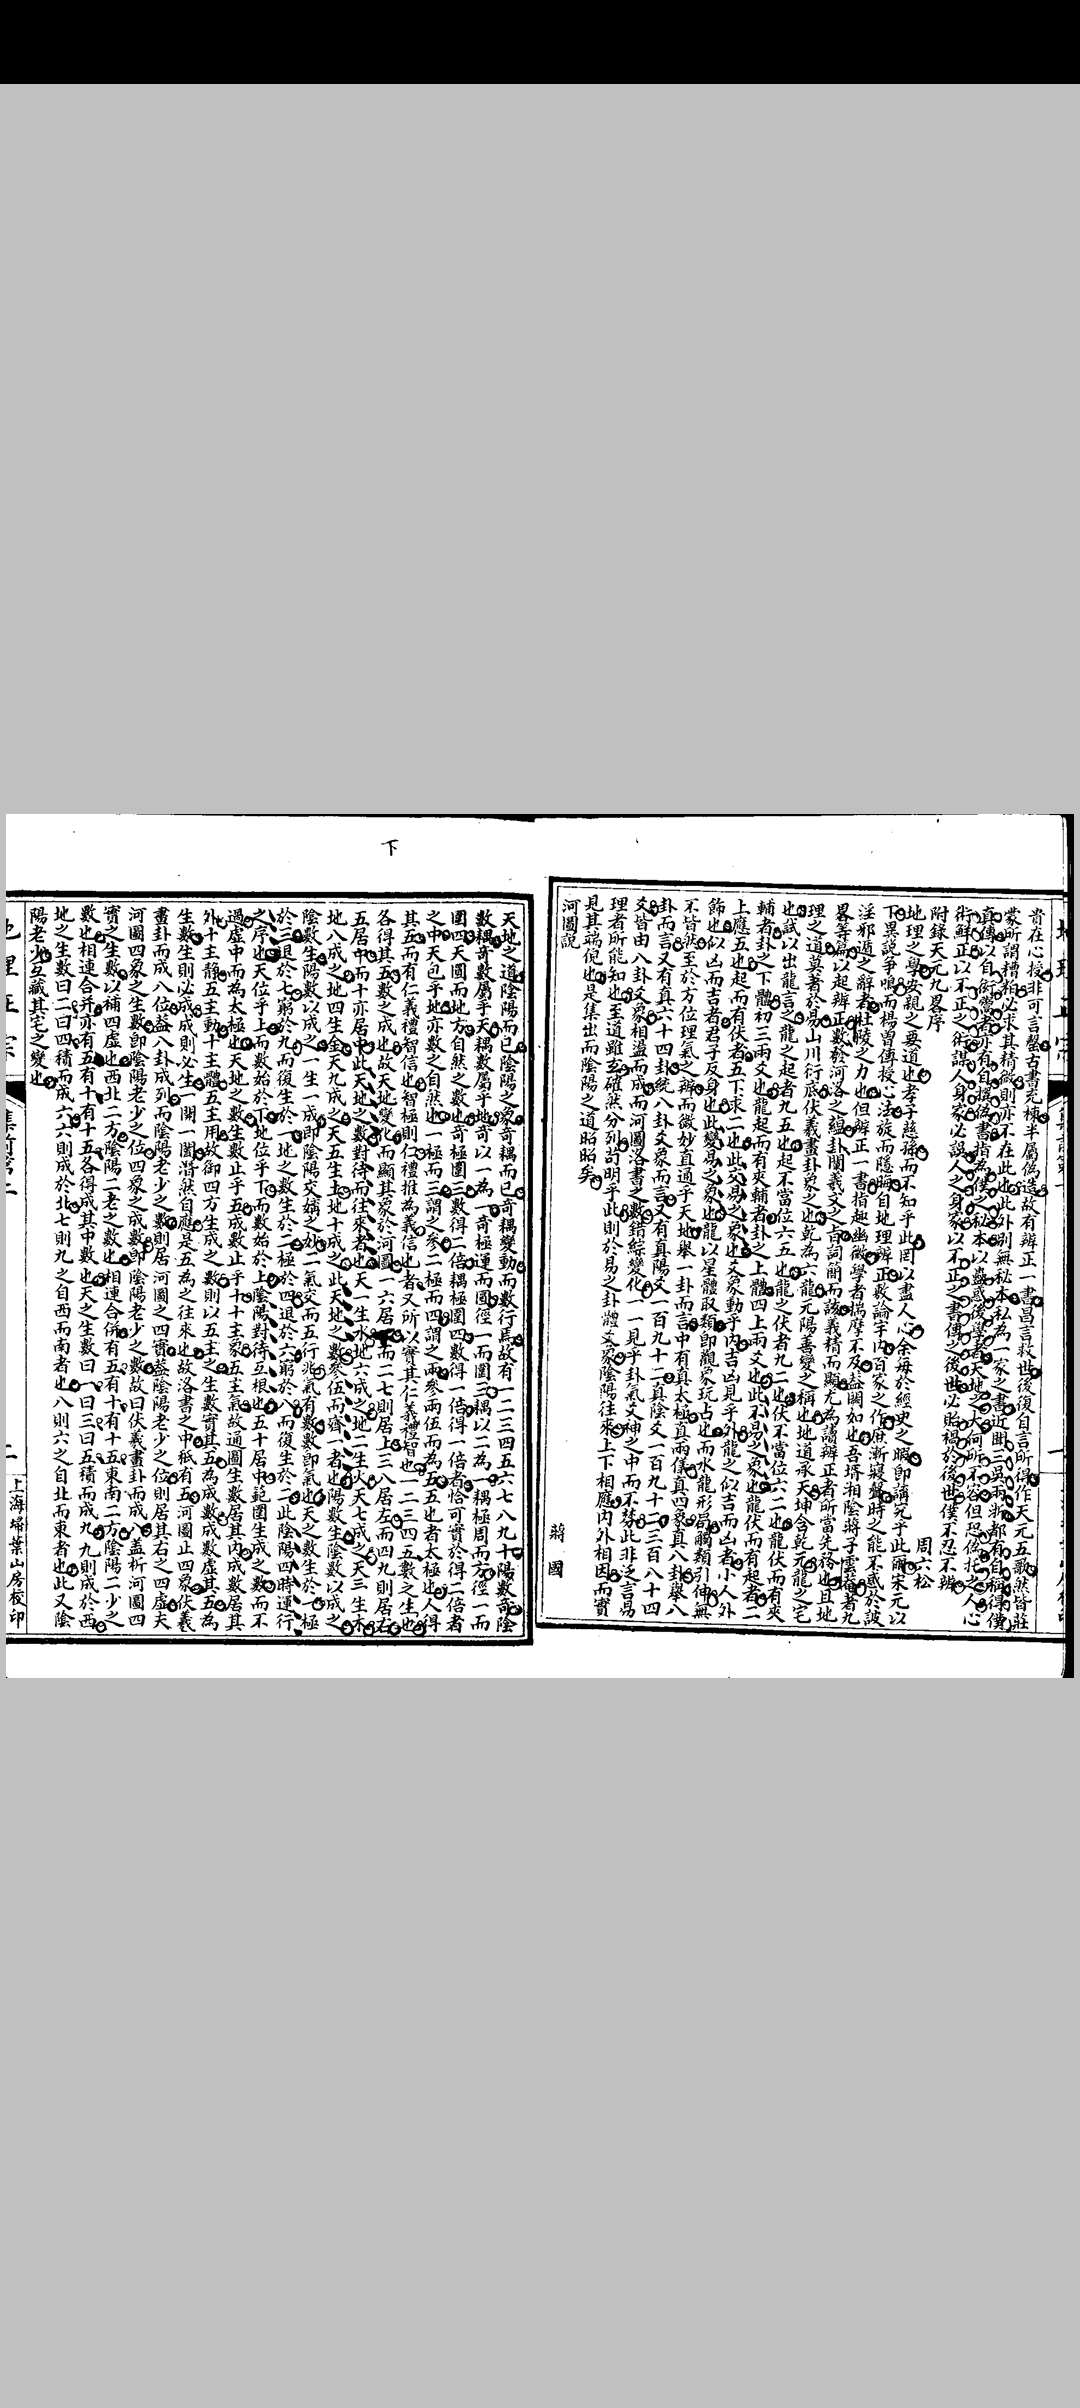 貴在心授非可言罄古書充棟半屬偽造故有辨正一書昌言救世後復自言所得作天元五歌然皆莊
蒙所謂糟粕必求其精微則亦不在此也此外別無秘本私為一家之書近聞三吳兩浙都有自稱得僕
真傳以自衒鬻者亦有自撰偽書指為僕之秘本以蠱惑後學者天地之大何所不容但恐偽托之人心
術鮮正以不正之術謀人身家必誤人之身家以不正之書傳之後世必貽禍於後世僕不忍不辨
附錄天元九畧序
周六松
地理之學安親之要道也孝子慈孫而不知乎此罔以盡人心余每於經史之暇卽講究乎此爾宋元以
下異說爭鳴而楊曾傳授心法旋而隱晦自地理辨正敷論宇內百家之作庶漸寢聲時之能不惑於詖
淫邪遁之辭者杜陵之力也但辨正一書指趣幽微學者揣摩不及益闕如也吾壻湘陰蔣子雲菴著九
畧等篇以起辨正數於河洛之蘊卦闡羲文之古詞簡而該義精而顯尤為讀辨正者所當先務也且地
理之道莫著於易山川行底伏羲畫卦象之也乾為六龍元陽善變之稱也地道承天坤含乾元龍之宅
也試以出龍言之龍之起者九五也起不當位六五也龍之伏者九二也伏不當位六二也龍伏而有夾
輔者卦之下體初三兩爻也龍起而有夾輔者卦之上體四上兩爻也此不易之象也龍伏而有起者二
上應五也起而有伏者五下求二也此交易之象也爻象動乎內吉凶見乎外龍之似吉而凶者小人外
飾也似凶而吉者君子反身也此變易之象也龍以星體取類卽觀象玩占也而水龍形局觸類引伸無
不皆然至於方位理氣之辨而微妙直通乎天地舉一卦而言中有真太極真兩儀真四象真八卦舉八
卦而言又有真六十四卦統八卦爻象而言又有真陽爻一百九十二真陰爻一百九十二三百八十四
爻皆由八卦爻象相盪而成而河圖洛書之數錯綜變化一一見乎卦氣爻神之中而不棼此非泛言易
理者所能知也至道雖玄確然分列苟明乎此則於易之卦體爻象陰陽往來上下相應內外相因而實
見其端倪也是集出而陰陽之道昭昭矣
河圖說
蔣國
天地之道陰陽而已陰陽之象奇耦而已奇耦變動而數行焉故有一二三四五六七八九十陽數奇陰
數耦奇數屬乎天耦數屬乎地奇以一為一奇極運而圓徑一而圍三耦以二為一耦極周而方徑一而
圍四天圓而地方自然之數也奇極圍三數得二倍耦極圍四數得一倍得一倍者恰可實於得二倍者
之中天包乎地亦數之自然也一極而三謂之參二極而四謂之兩參兩伍而為五五也者太極也人得
其五而有仁義禮智信也智極則仁禮推為義信也者又所以實其仁義禮智也一二三四五數之生也
各得其五數之成也故天地變化而顯其象於河圖一六居下而二七則居上三八居左而四九則居右
五居中而十亦居中此天地之數對待而往來者也天一生水地六成之地二生火天七成之天三生木
地八成之地四生金天九成之天五生土地十成之此天地之數參伍而齊一者也陽數生陰數以成之
陰數生陽數以成之一生一成卽陰陽交媾之妙二氣交而五行兆氣有數數卽氣也天之數生於一極
於三退於七窮於九而復生於一地之數生於二極於四退於六窮於八而復生於二此陰陽四時運行
之序也天位乎上而數始於下地位乎下而數始於上陰陽對待互根也五十居中範圍生成之數而不
過虛中而為太極也天地之數生數止乎五成數止乎十十主象五主氣故通圖生數居其內成數居其
外十主靜五主動十主體五主用故御四方生成之數則以五主之生數實其五為成數成數虛其五為
生數生則必成成則必生一開一闔潛然自應是五為之往來也故洛書之中秪有五河圖止四象伏羲
畫卦而成八位益八卦成列而陰陽老少之數則居河圖之四實益陰陽老少之位則居其右之四虛夫
河圖四象之生數卽陰陽老少之位四象之成數卽陰陽老少之數故曰伏羲畫卦而成八蓋析河圖四
實之生數以補四虛也西北二方陰陽二老之數也相連合併有五有十有十五東南二方陰陽二少之
數也相連合并亦有五有十有十五各得成其中數也天之生數曰一曰三曰五積而成九九則成於西
地之生數曰二曰四積而成六六則成於北七則九之自西而南者也八則六之自北而東者也此又陰
陽老少互藏其宅之變也
上海掃葉山房校印
下